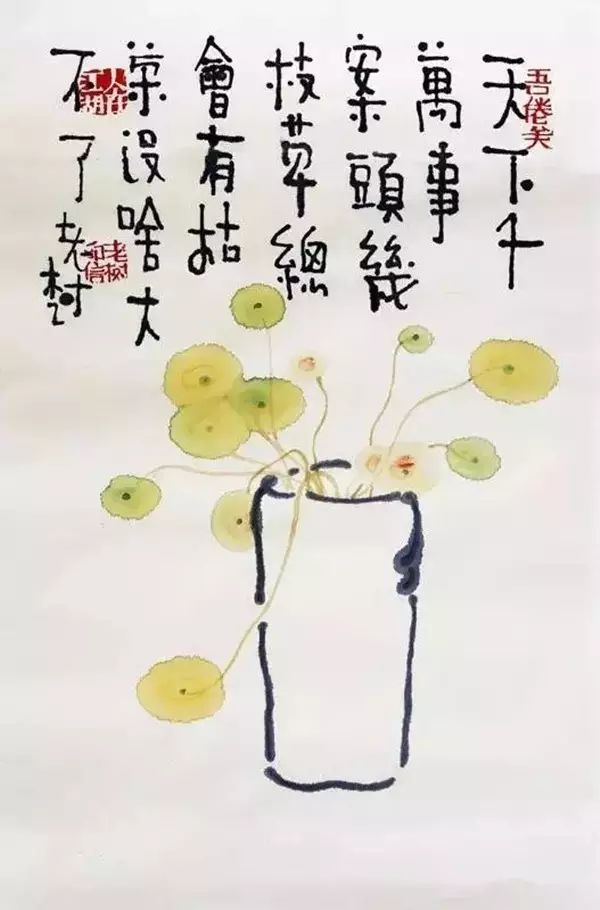 吾倦矣
天下千
萬事
案頭幾
枝草總
會有枯
荣没啥大
不了老树
人在江湖
老树印信